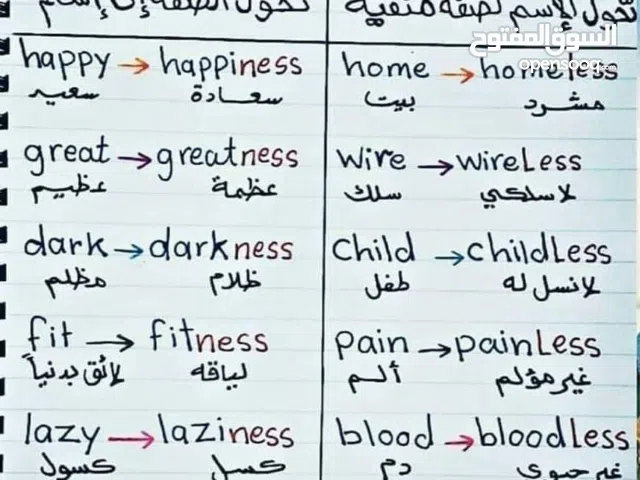 نحول الصفة إلى إسم
نحول الإسم لصفة منفية
السوق المفتوح
opensooq.com
happy → happiness
سعيد سعادة
home → homeless
بيت مشرد
great → greatness
عظيم عظمة
wire → wireless
سلك لاسلكي
dark → darkness
مظلم ظلام
child → childless
طفل لانسل له
fit → fitness
لائق بدنياً لياقه
pain → painless
ألم غير مؤلم
lazy → laziness
كسول كسل
blood → bloodless
دم غير حيوي